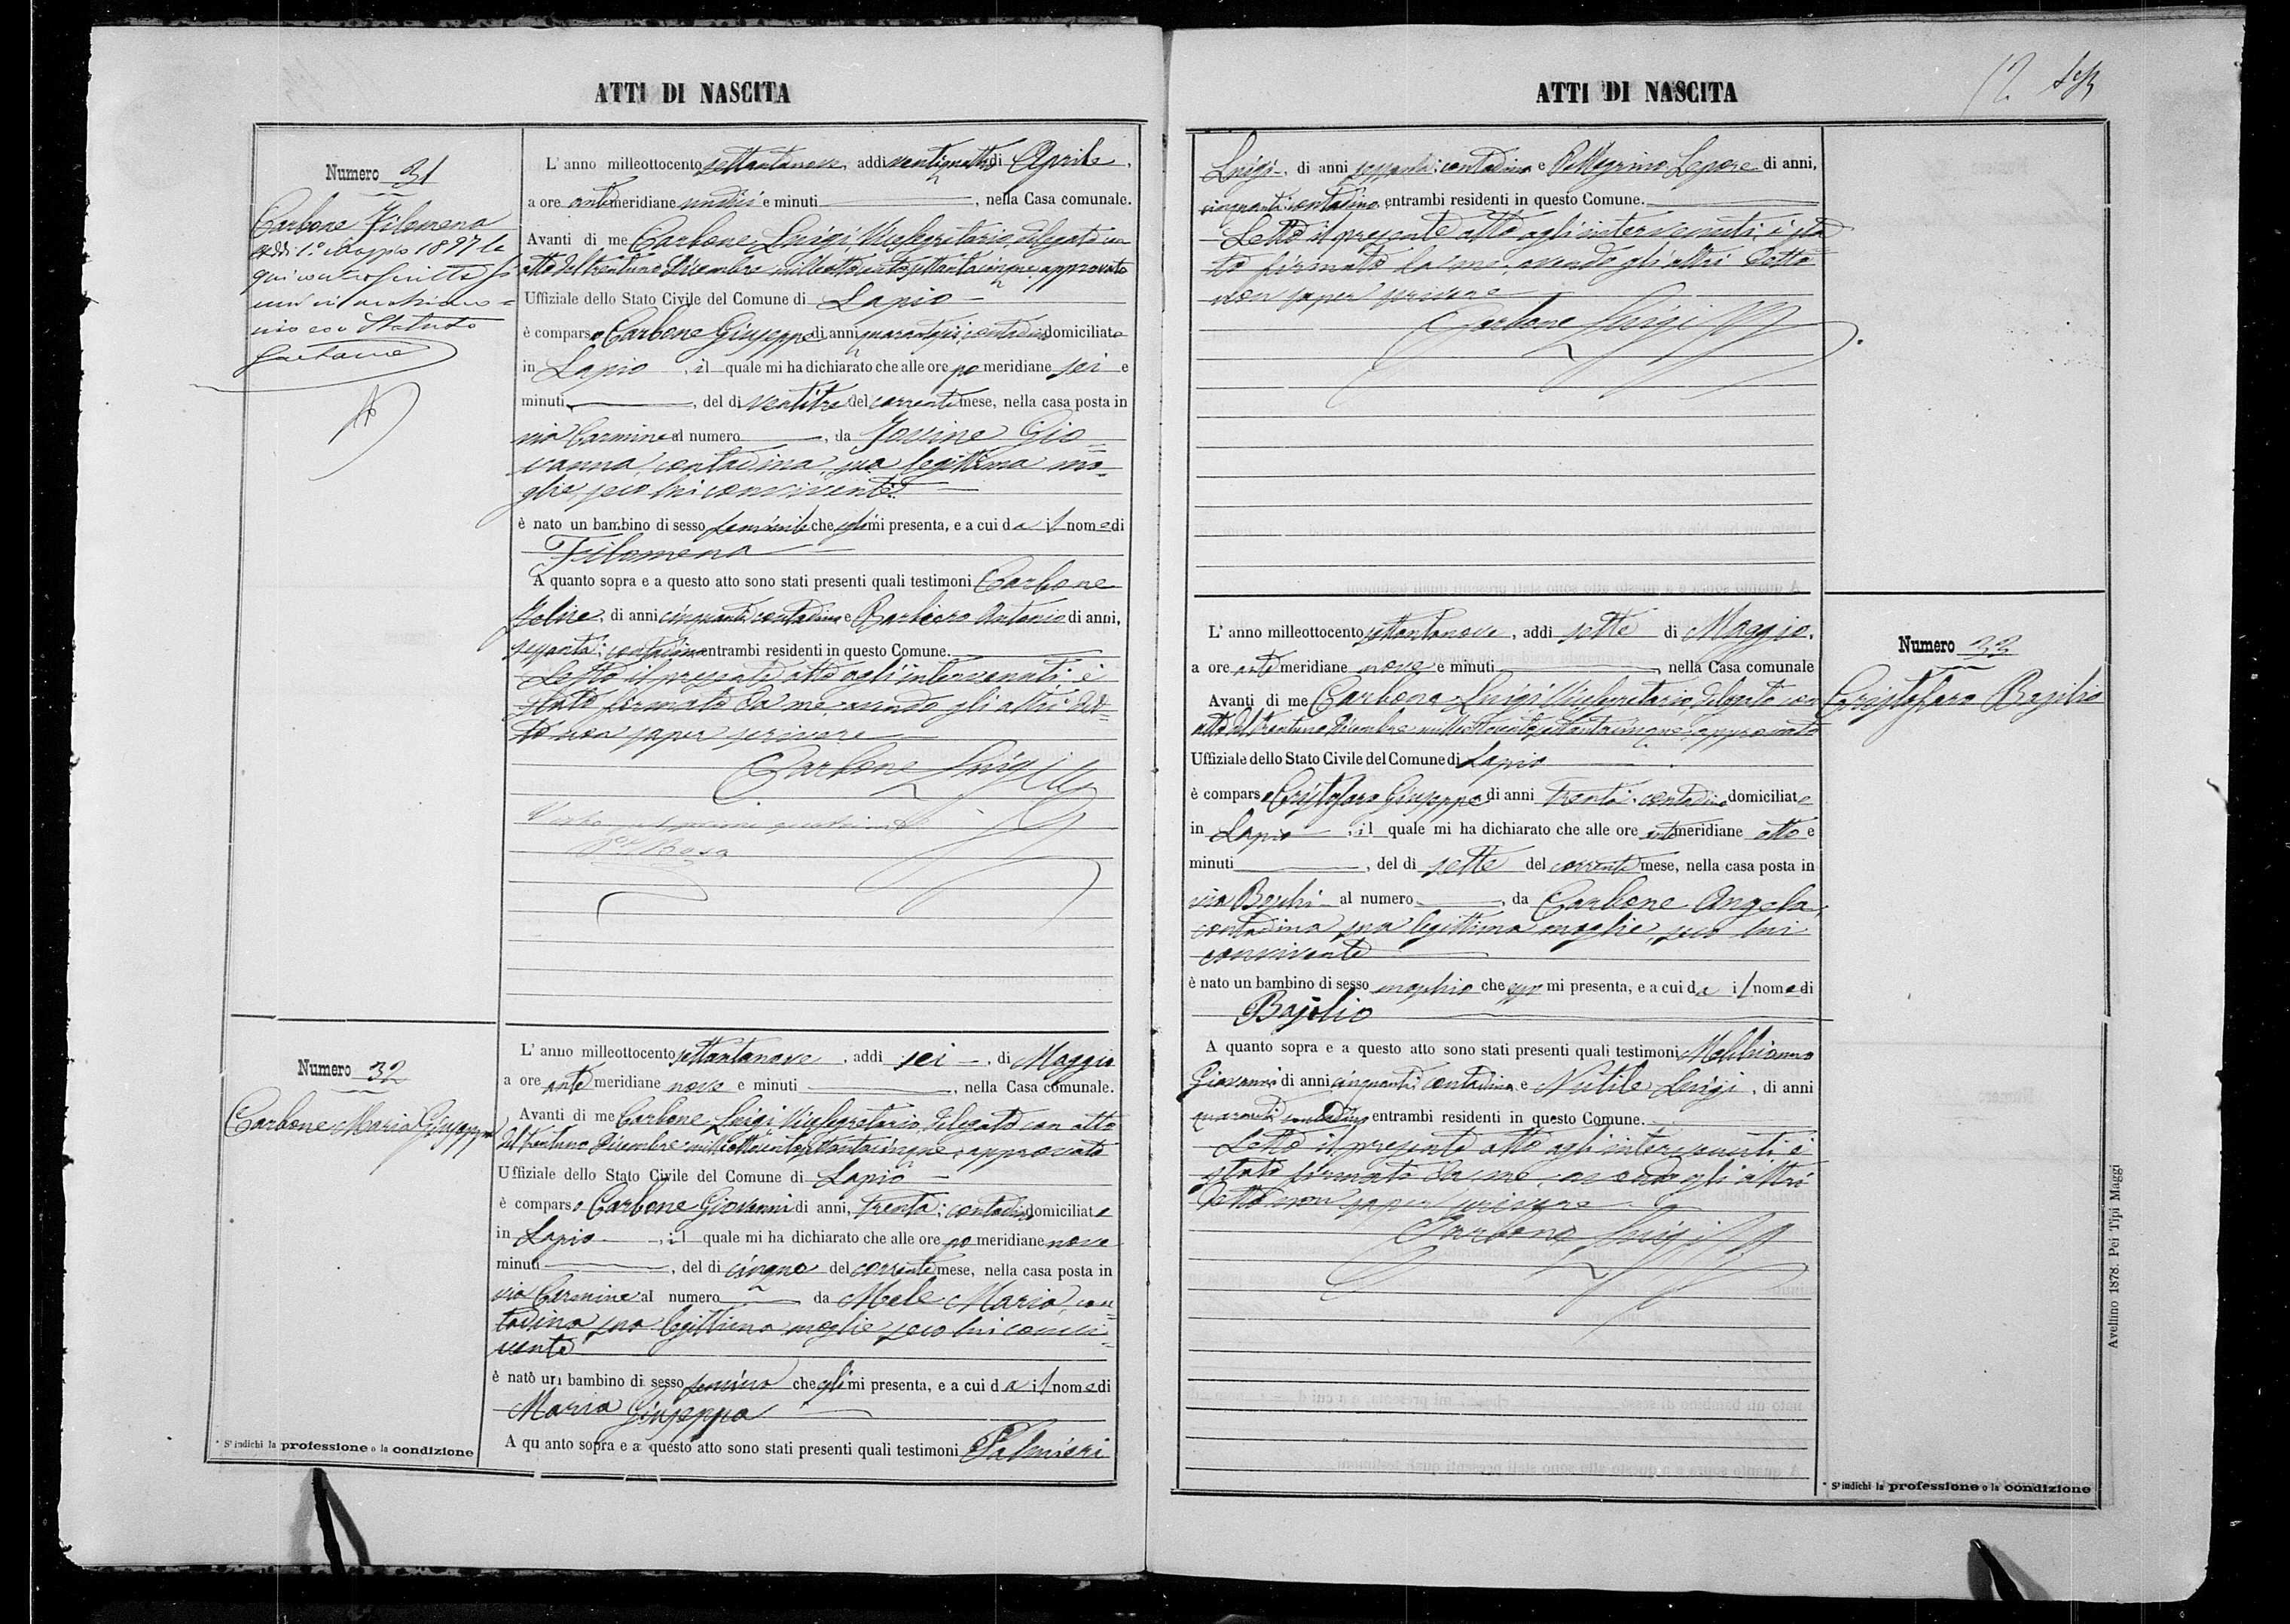 ATTI DI NASCITA
Numero 31
Carbone Filomena
Addì 1° Maggio 1897 la
qui controscritta si
unì in matrimo=
nio con Staluto
Gaetano
L'anno milleottocento settantanove, addì ventiquattro di Aprile,
a ore antimeridiane undici e minuti, nella Casa comunale.
Avanti di me Carbone Luigi, Vicesegretario, delegato con
atto del trentuno Dicembre milleottocentosettantacinque, approvato
Uffiziale dello Stato Civile del Comune di Lapio
è comparso Carbone Giuseppe di anni quarantasei contadino domiciliato
in Lapio, il quale mi ha dichiarato che alle ore pomeridiane sei e
minuti, del dì ventitre del corrente mese, nella casa posta in
via Carmine al numero, da Iovine Gio=
vanna, contadina, sua legittima mo=
glie, seco lui convivente
è nato un bambino di sesso feminile che egli mi presenta, e a cui dà il nome di
Filomena
A quanto sopra e a questo atto sono stati presenti quali testimoni Carbone
Felice, di anni cinquanta contadino e Barbiero Antonio di anni,
sessanta; contadino entrambi residenti in questo Comune.
Letto il presente atto agl'intervenuti è
stato firmato da me avendo gli altri det=
to non saper scrivere
Carbone Luigi
Numero 32
Carbone Maria Giuseppa
L'anno milleottocento settantanove, addì sei, di Maggio
a ore antemeridiane nove e minuti, nella Casa comunale.
Avanti di me Carbone Luigi Vicesegretario, delegato con atto
del trentuno Dicembre milleottocentosettantacinque, approvato
Uffiziale dello Stato Civile del Comune di Lapio
è comparso Carbone Giovanni di anni, trenta; contadino domiciliato
in Lapio, il quale mi ha dichiarato che alle ore pomeridiane nove
minuti, del dì cinque del corrente mese, nella casa posta in
via Carmine al numero da Mele Maria, con=
tadina sua legittima moglie seco lui convi=
vente
è nato un bambino di sesso feminino che egli mi presenta, e a cui dà il nome di
Maria Giuseppa
A quanto sopra e a questo atto sono stati presenti quali testimoni Palmieri
* S'indichi la professione o la condizione
ATTI DI NASCITA
12
Luigi, di anni sessanta; contadino e Pellegrino Lepore di anni,
cinquanta contadino entrambi residenti in questo Comune.
Letto il presente atto agli intervenuti, è sta=
to firmato da me, avendo gli altri detto
non saper scrivere
Carbone Luigi
Numero 33
Cristofaro Basilio
L'anno milleottocento settantanove, addì sette di Maggio,
a ore antemeridiane nove e minuti, nella Casa comunale
Avanti di me Carbone Luigi Vicesegretario, delegato con
atto del trentuno Dicembre milleottocentosettantacinque, approvato
Uffiziale dello Stato Civile del Comune di Lapio
è comparso Cristofaro Giuseppe di anni trenta; contadino domiciliato
in Lapio, il quale mi ha dichiarato che alle ore antemeridiane otto e
minuti, del dì sette del corrente mese, nella casa posta in
via Boschi al numero, da Carbone Angela,
contadina sua legittima moglie, seco lui
convivente
è nato un bambino di sesso maschio che egli mi presenta, e a cui dà il nome di
Basilio
A quanto sopra e a questo atto sono stati presenti quali testimoni
Giovanni di anni cinquanta contadino e Nutile Luigi, di anni
quaranta contadino entrambi residenti in questo Comune.
Letto il presente atto agl'intervenuti è
stato firmato da me avendo gli altri
detto non saper scrivere
Carbone Luigi
Avellino 1878. Pei Tipi Maggi
* S'indichi la professione o la condizione